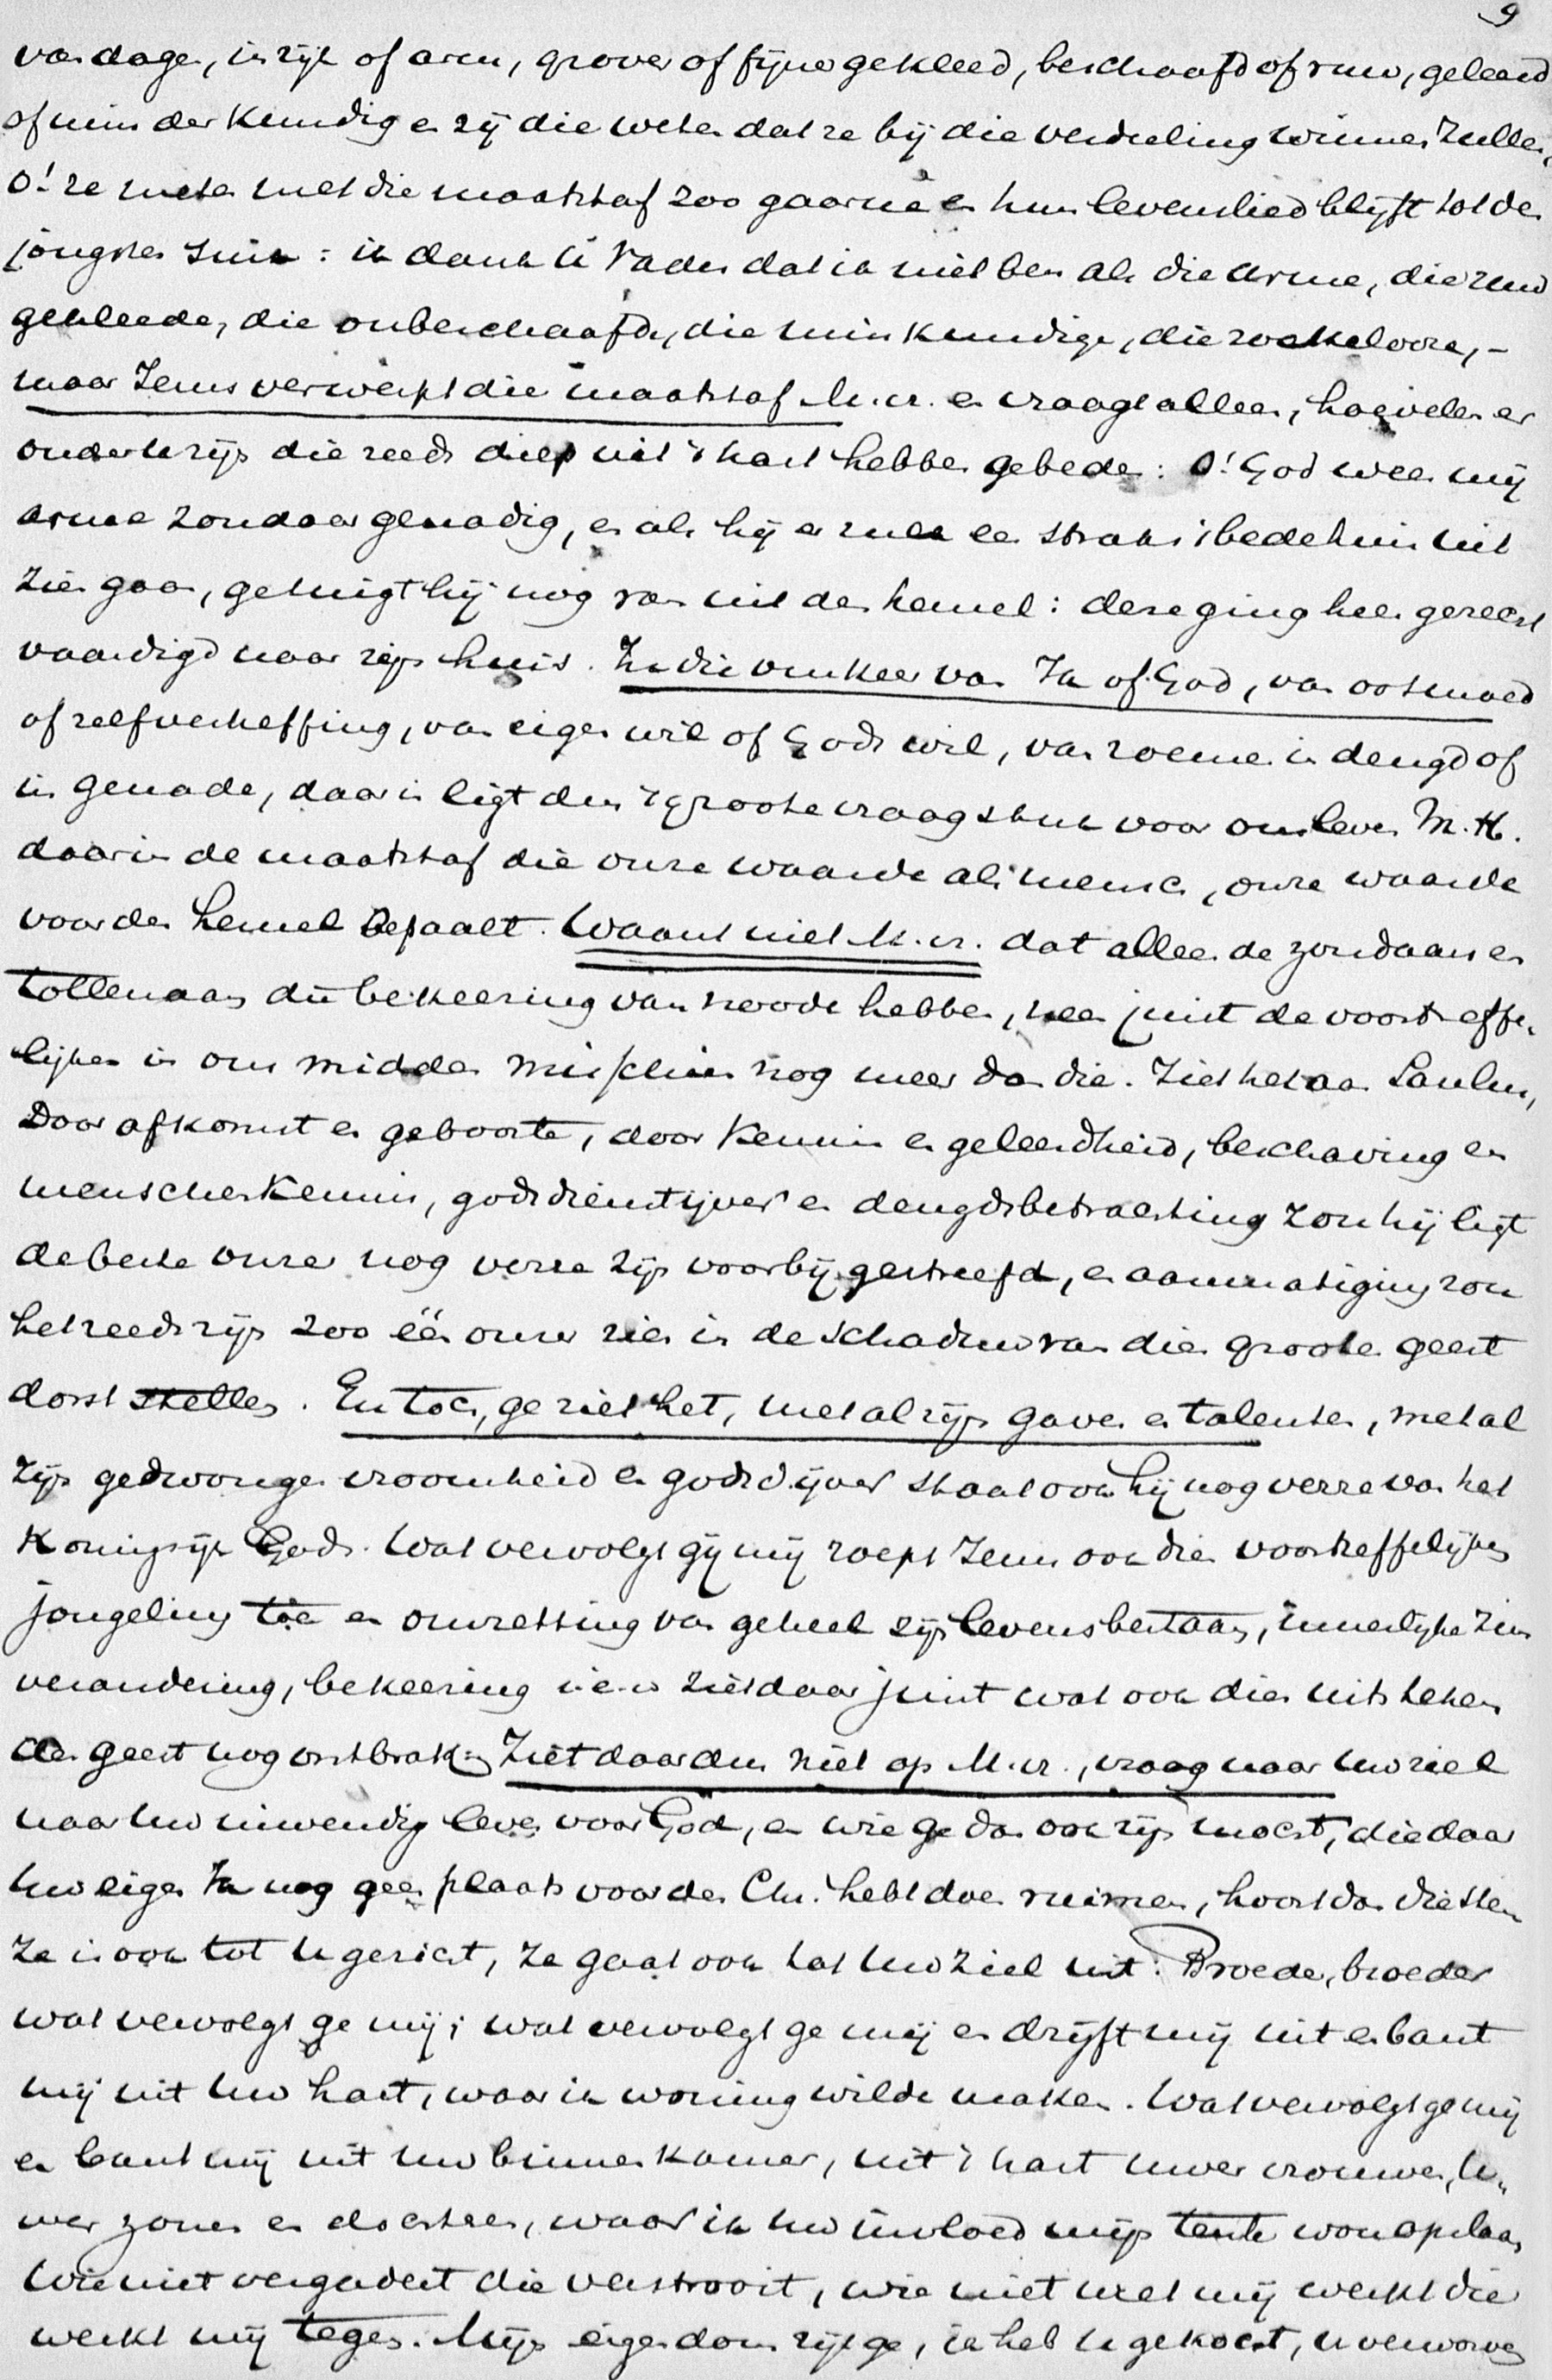 9
van dagen, in rijk of arm, grover of fijner gekleed, beschaafd of ruw, geleerd
of minder kundig en zij die weten dat ze bij die verdeeling winnen zullen,
O! ze meten met die maatstaf zoo gaarne en hun levenslied blijft tot den
jongsten snik: ik dank U Vader dat ik niet ben als die arme, die ruw
gekleede, die onbeschaafde, die min kundige, die roekelooze, –
maar Jezus verwerpt die maatstaf M. vr. en vraagt alleen, hoevelen er
onder U zijn die reeds diep uit 't hart hebben gebeden: O! God wees mij
arme zondaar genadig, en als hij er zulk een straks 't bedehuis uit
ziet gaan, getuigt hij nog van uit den hemel: deze ging heen gerecht
vaardigd naar zijn huis. In die omkeer van Ik of God, van ootmoed
of zelfverheffing, van eigen wil of Gods wil, van roemen in deugd of
in genade, daarin ligt dus 't groote vraagstuk voor ons leven M. H.
daarin de maatstaf die onze waarde als mensch, onze waarde
voor den hemel bepaalt. Waant niet M. vr. dat alleen de zondaars en
tollenaars die bekeering van noode hebben, neen juist de voortreffe-
lijken in ons midden misschien nog meer dan die. Ziet het aan Saulus,
Door afkomst en geboorte, door kennis en geleerdheid, beschaving en
menschenkennis, godsdienstijver en deugdsbetrachting zou hij ligt
de beste onzer nog verre zijn voorbij gestreefd, en aanmatiging zou
het reeds zijn zoo één onzer zich in de schaduw van dien grooten geest
dorst stellen. En toch, ge ziet het, met al zijn gaven en talenten, met al
zijn gedwongen vroomheid en godsd.ijver staat ook hij nog verre van het
Koningrijk Gods. Wat vervolgt gij mij roept Jezus ook dien voortreffelijken
jongeling toe en omzetting van geheel zijn levensbestaan, innerlijke zins
verandering, bekeering i.e.w. ziet daar juist wat ook dien uitsteken
den geest nog ontbrak. Ziet daar dus niet op M. vr., vraag naar uw ziel
naar uw inwendig leven voor God, en wie ge dan ook zijn moogt, die daar
uw eigen Ik nog geen plaats voor den Chr. hebt doen ruimen, hoort dan die stem
Ze is ook tot U gericht, ze gaat ook tot uw ziel uit: Broeder, broeder
wat vervolgt ge mij; wat vervolgt ge mij en drijft mij uit en bant
mij uit uw hart, waar ik woning wilde maken. Wat vervolgt ge mij
en bant mij uit uw binnenkamer, uit 't hart uwer vrouwen, U-
wer zonen en dochters, waar ik uw invloed mijn tente wou opslaan
Wie niet vergadert die verstrooit, wie niet met mij werkt die
werkt mij tegen. Mijn eigendom zijt ge, ik heb U gekocht, U verworven